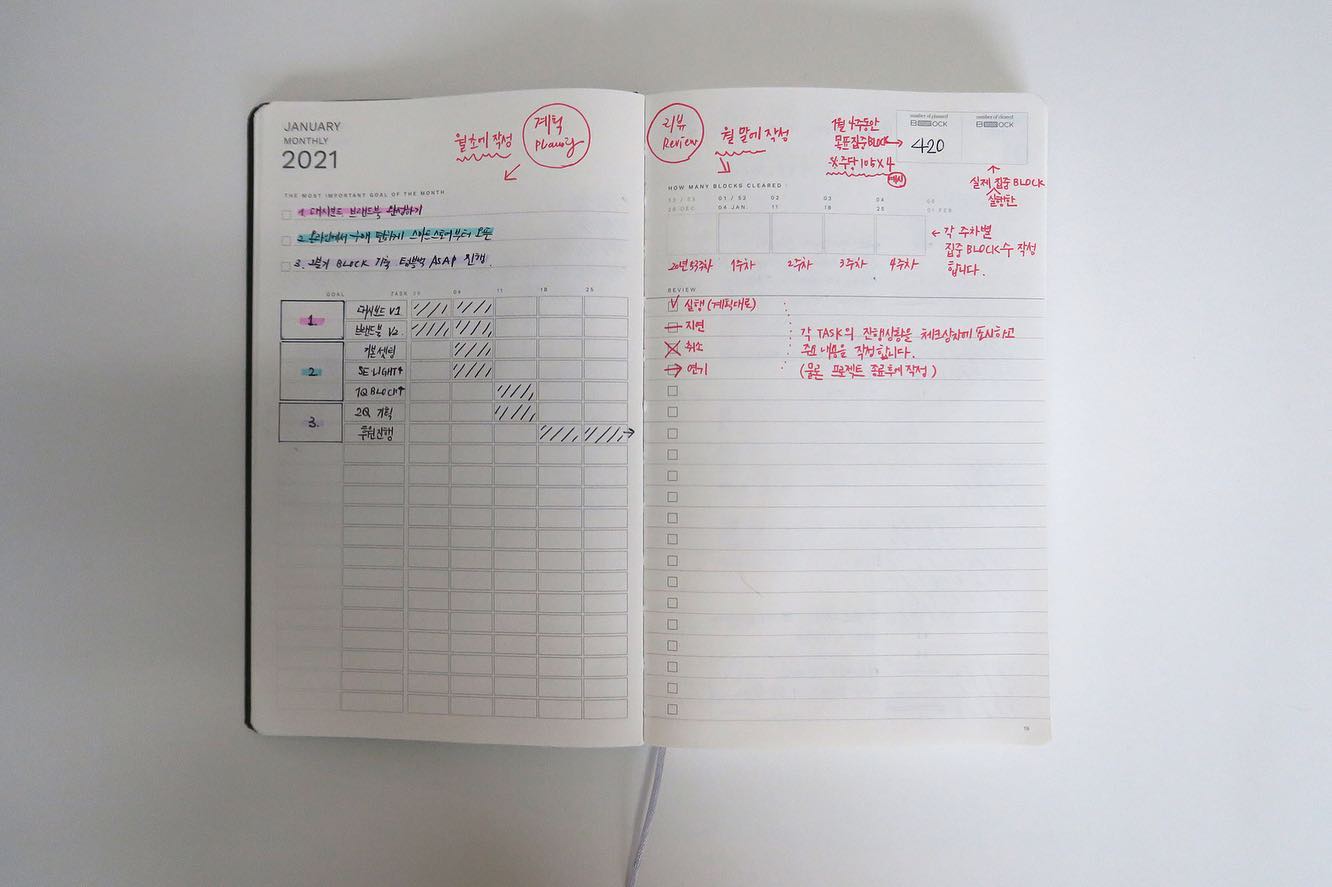 JANUARY
MONTHLY
2021
월초에 작성
계획
Planning
THE MOST IMPORTANT GOAL OF THE MONTH
1. 대시보드 브랜드북 완성하기
2. 온라인에서 구매 편하게 스마트스토어부터 오픈
3. 2분기 BLOCK 기획 텀블벅 ASAP 진행.
GOAL TASK 28 04 11 18 25
1. 대시보드 V1
브랜드북 V2.
2. 기본셋팅
SE·LIGHT↑
1Q BLOCK↑
3. 2Q 기획
후원진행
리뷰
Review
월 말에 작성
1월 4주동안
목표집중BLOCK
※주당 105×4
예시
number of planned
BLOCK
420
number of cleared
BLOCK
실제 집중 BLOCK
실행한
HOW MANY BLOCKS CLEARED
53 / 53 01 / 52 02 03 04 05
28 DEC. 04 JAN. 11 18 25 01 FEB
20년 53주차 1주차 2주차 3주차 4주차
← 각 주차별
집중 BLOCK수 작성
합니다.
REVIEW
실행 (계획대로)
지연
취소
연기
각 TASK의 진행상황을 체크상자에 표시하고
주요 내용을 작성합니다.
(물론 프로젝트 종료후에 작성)